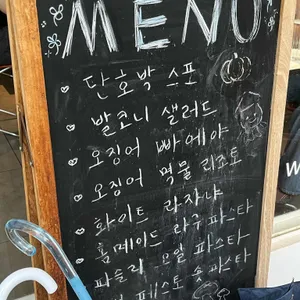 MENU
단호박 스프
발코니 샐러드
오징어 빠에야
오징어 먹물 리조또
화이트 라자냐
홈메이드 라구 파스타
파슬리 오일 파스타
페스토 숏 파스타
W